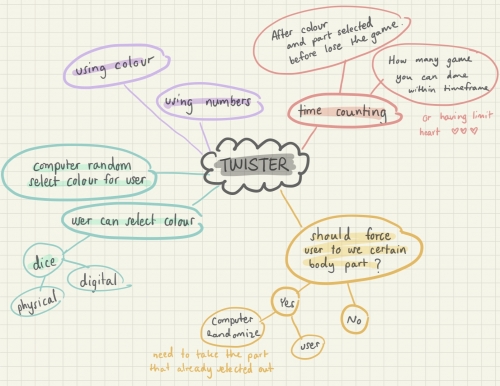 After colour
and part selected
before lose the game.
How many game
you can done
within timeframe
or having limit
heart ♡♡♡
time counting
using colour
using numbers
TWISTER
computer random
select colour for user
user can select colour
dice
digital
physical
should force
user to we certain
body part ?
Yes
No
Computer
Randomize
user
need to take the part
that already selected out